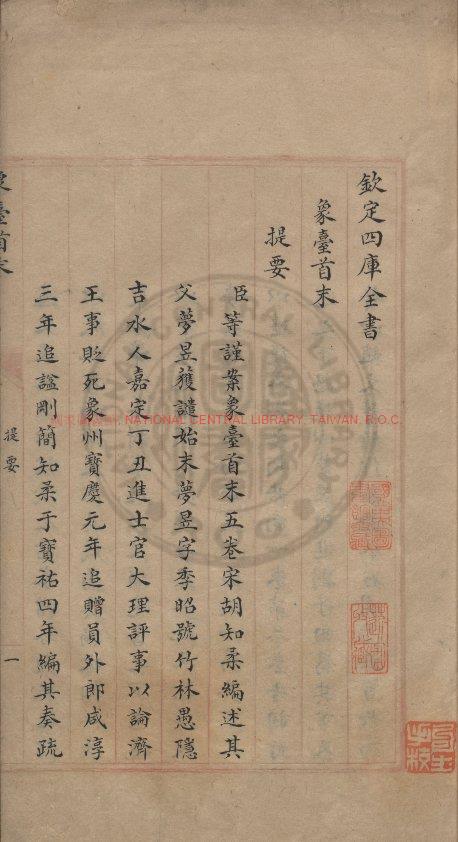 欽定四庫全書
象臺首末
提要
臣等謹案象臺首末五卷宋胡知柔編述其
父夢昱獲譴始末夢昱字季昭號竹林愚隱
吉水人嘉定丁丑進士官大理評事以論濟
王事貶死象州寶慶元年追贈員外郎咸淳
三年追諡剛簡知柔于寶祐四年編其奏疏
象臺首末
提要
一
NATIONAL CENTRAL LIBRARY, TAIWAN, R.O.C.